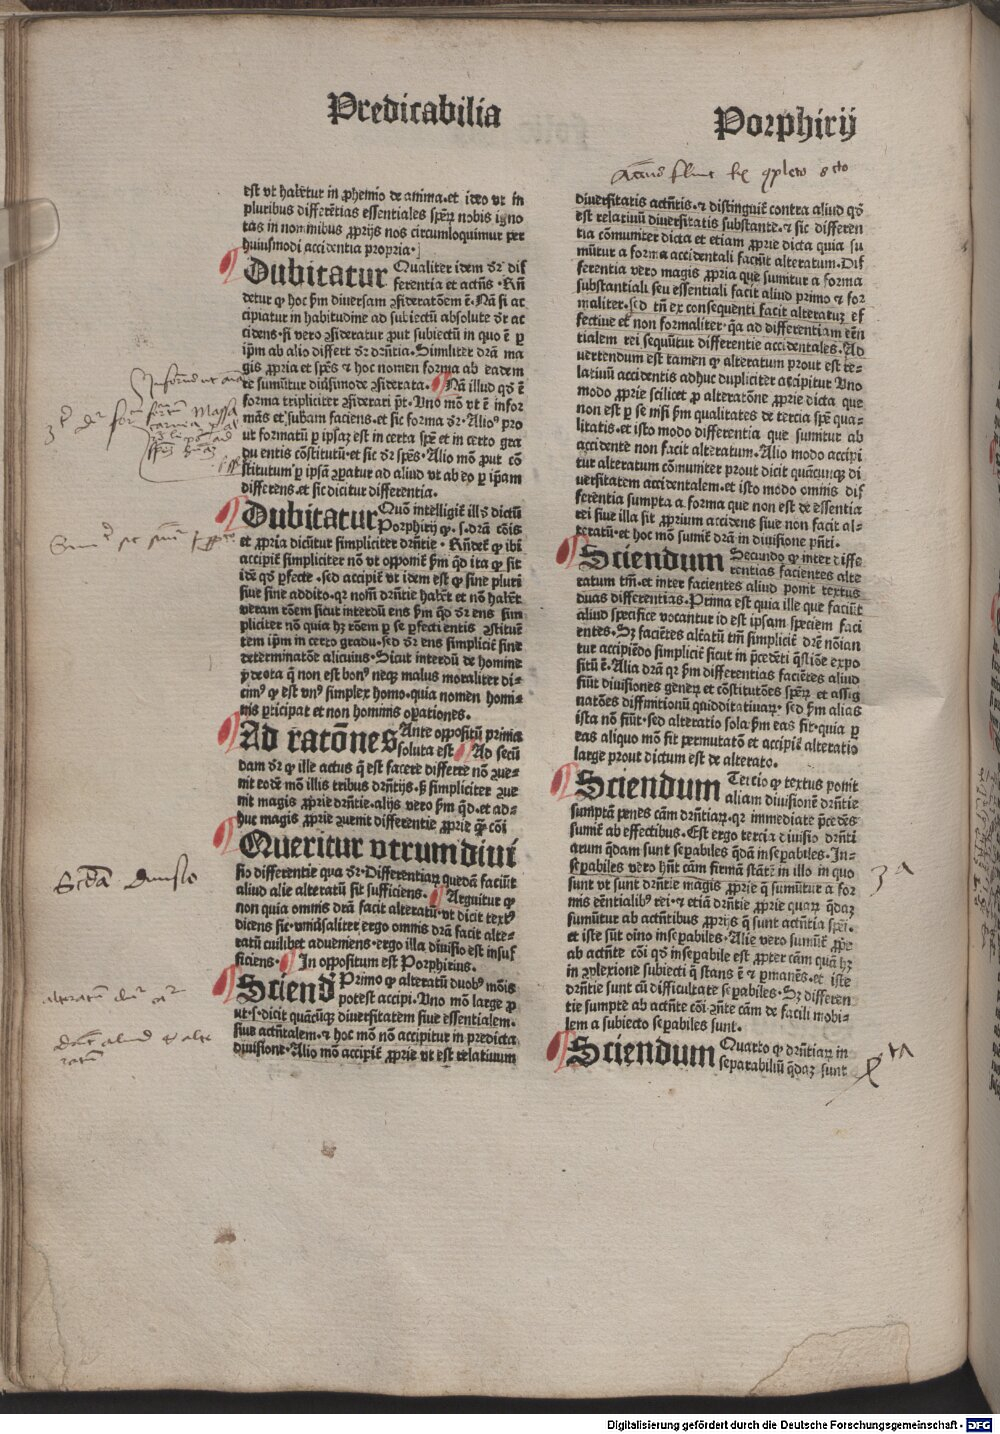 Predicabilia
Porphirij
est vt habet̃ur in ꝓhemio de anima.et ideo vt in
pluribus differẽtias essentiales sꝑerꝝ nobis igno
tas in nominibus ꝓprijs nos circumloquimur per
huiusmodi accidentia propria.
Dubitatur Qualiter idem dr̃ dif
ferentia et actñs .Rñ
detur ꝙ hoc ẞm diuersam ꝯsideratõem ẽ.Nã si ac
cipiatur in habitudine ad subiectũ absolute dr̃ ac
cidens.si vero ꝯsideratur ꝓut subiectũ in quo ẽ ꝑ
ip̃m ab alio differt dr̃ dr̃ntia.Similiter drãm ma
gis ꝓpria et spẽs ⁊ hoc nomen forma ab eadem
re sumũtur diuisimode ꝯsiderata. Nã illud qd̃ ẽ
forma tripliciter ꝯsiderari põt.Vno mõ vt ẽ infor
mãs et subam faciens.et sic forma dr̃.Alio pro
ut formatũ ꝑ ipsaꝫ est in certa spẽ et in certo gra
du entis cõstitutũ.et sic dr̃ spẽs.Alio mõ ꝓut cõ
stitutum ꝑ ipsã ꝯparatur ad aliud vt ab eo ꝑ ip̃am
differens.et sic dicitur differentia.
Dubitatur Quõ intelligit̃ illd̃ dictũ
Porphirij ꝙ .s.drã cõis
et ꝓpria dicũtur simpliciter dr̃ntie. Rñdet̃ ꝙ ibi
accipit̃ simpliciter nõ vt opponit̃ ẞm qd ita ꝙ sit
idẽ qd̃ ꝑfecte .sed accipit̃ vt idem est ꝙ sine pluri
siue sine addito.qꝛ nom̃ dr̃ntie habẽt et nõ habẽt
veram rõem sicut interdũ ens ẞm qd dr̃ ens sim
pliciter nõ quia hꝫ rõem ꝑ se ꝑfecti entis ꝯstituẽ
tem ip̃m in certo gradu.sed dr̃ ens simplicit̃ sine
determinatõe alicuius.Sicut interdũ de homine
ydeota q̃ non est bon⁹ neqꝫ malus moraliter di-
cim⁹ ꝙ est vn⁹ simplex homo.quia nomen homi-
nis ꝑticipat et non hominis oꝑationes.
Ad ratõnes Ante oppositũ prima
soluta est Ad secũ
dam dr̃ ꝙ ille actus q̃ est facere differre nõ ꝯue-
nit eodẽ mõ illis tribus dr̃ntijs.ẞ simpliciter ꝯue
nit magis ꝓprie dr̃ntie.alijs vero ẞm qd.et ad-
huc magis ꝓprie ꝯuenit differentie ꝓprie q̃ cõi
Queritur vtrum diui
sio differentie qua dr̃.Differentiarꝝ quedã faciũt
aliud alie alteratũ sit sufficiens. Arguitur ꝙ
non quia omnis drã facit alteratũ.vt dicit text⁹
dicens sic.vniũsaliter ergo omnis drã facit alte-
ratũ cuilibet adueniens.ergo illa diuisio est insuf
ficiens. In oppositum est Porphirius.
Sciend̃ Primo ꝙ alteratũ duob⁹ mõis
potest accipi.Vno mõ large ꝓ
ut.s.dicit quãcũqꝫ diuersitatem siue essentialem.
siue actñtalem.⁊ hoc mõ nõ accipitur in predicta
diuisione.Alio mõ accipit̃ ꝓprie vt est relatiuum
diuersitatis actñtis.⁊ distinguit̃ contra aliud qd̃
est relatiuũ diuersitatis substantie.⁊ sic differen
tia cõmuniter dicta et etiam ꝓprie dicta quia su
mũtur a forma accidentali faciũt alteratum.Dif
ferentia vero magis ꝓpria que sumitur a forma
substantiali seu essentiali facit aliud primo ⁊ for
maliter.sed tñ ex consequenti facit alteratuꝫ ef
fectiue et non formaliter.q̃a ad differentiam eẽn
tialem rei sequũtur differentie accidentales.Ad
uertendum est tamen ꝙ alteratum prout est re-
latiuũ accidentis adhuc dupliciter accipitur Vno
modo ꝓprie scilicet ꝓ alteratõne ꝓprie dicta que
non est ꝑ se nisi ẞm qualitates de tercia spẽ qua-
litatis.et isto modo differentia que sumitur ab
accidente non facit alteratum.Alio modo accipi
tur alteratum cõmuniter prout dicit quãcunqꝫ di
uersitatem accidentalem.et isto modo omnis dif
ferentia sumpta a forma que non est de essentia
rei siue illa sit ꝓprium accidens siue non facit al-
teratũ.et hoc mõ sumit̃ drã in diuisione pñti.
Sciendum Secundo ꝙ inter diffe
rentias facientes alte
ratum tm̃.et inter facientes aliud ponit textus
duas differentias.Prima est quia ille que faciũt
aliud specifice vocantur id est ipsam speciem faci
entes.Sꝫ faciẽtes alẽatũ tm̃ simplicit̃ drẽ nõian
tur accipiẽdo simplicit̃ sicut in p̃cedẽti q̃stiõe expo
sitũ ẽ.Alia drã qꝛ ẞm differentias faciẽtes aliud
fiũt diuisiones generꝝ et cõstitutões sperꝝ et assig
natões diffinitionũ quidditatiuarꝝ.sed ẞm alias
ista nõ fiũt.sed alteratio sola ẞm eas fit.quia ꝑ
eas aliquo mõ fit permutatõ et accipit̃ alteratio
large prout dictum est de alterato.
Sciendum Tercio ꝙ textus ponit
aliam diuisionẽ dr̃ntie
sumptã penes cãm dr̃ntiarꝝ.qꝛ immediate p̃cedẽs
sumit̃ ab effectibus.Est ergo tercia diuisio dr̃nti
arum q̃dam sunt seꝑabiles q̃dã inseꝑabiles.In-
seꝑabiles vero hñt cãm firmã stãtẽ in illo in quo
sunt vt sunt dr̃ntie magis ꝓprie q̃ sumũtur a for
mis eẽntialib⁹ rei.⁊ etiã dr̃ntie ꝓprie quarꝝ q̃daꝫ
sumũtur ab actñtibus ꝓprijs q̃ sunt actñtia spẽi.
et iste sũt oĩno inseꝑabiles.Alie vero sumũt̃ ꝓpe
ab actñte cõi qd̃ inseꝑabile est ꝓpter cãm quã hꝫ
in ꝯplexione subiecti q̃ stans ẽ ⁊ ꝑmanẽs.et iste
dr̃ntie sunt cũ difficultate seꝑabiles.Sꝫ differen
tie sumpte ab actñte cõi.hñte cãm de facili mobi-
lem a subiecto seꝑabiles sunt.
Sciendum Quarto ꝙ dr̃ntiarꝝ in
separabiliũ q̃daꝫ sunt
Digitalisierung gefördert durch die Deutsche Forschungsgemeinschaft - DFG